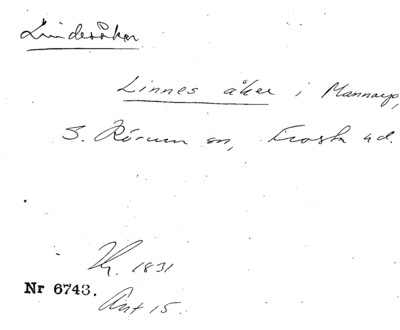 Lindesåker
Linnes åker i Mannarp,
S. Rörum sn, Frosta hd.
1831
Nr 6743.
Ant 15.